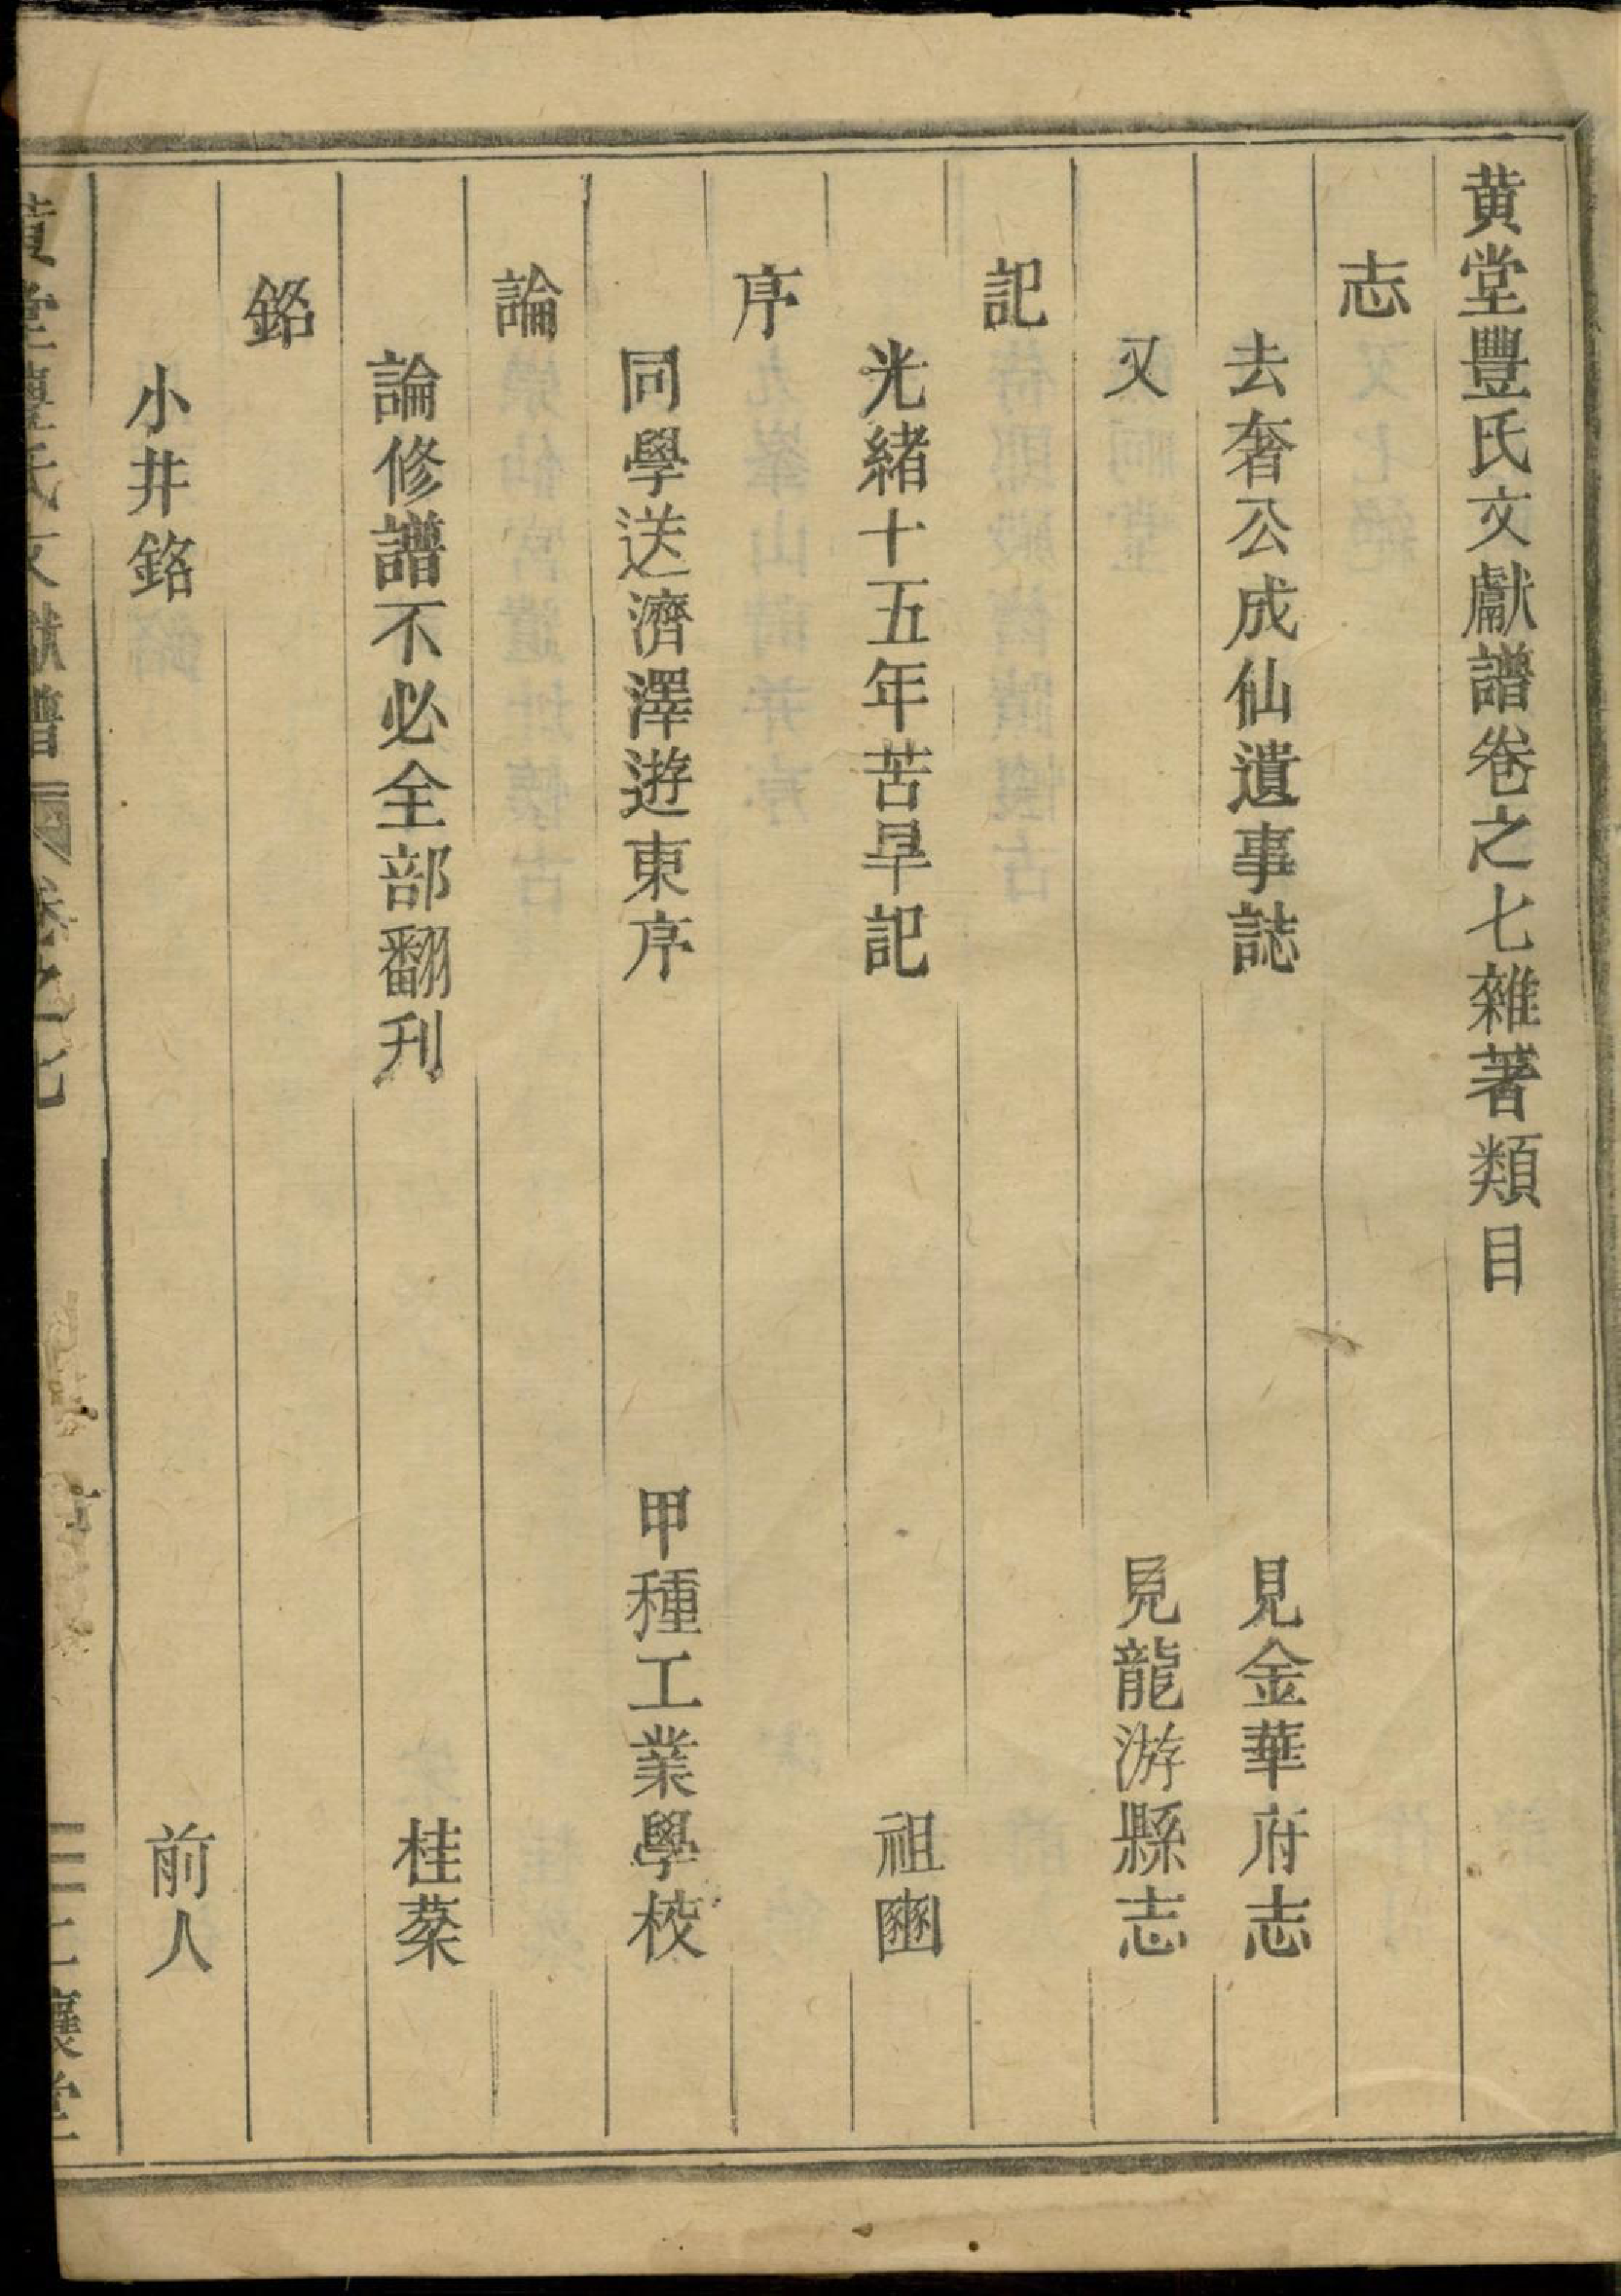 黄堂豐氏文獻譜卷之七雜著類目
志
去奢公成仙遺事誌 見金華府志
又 見龍游縣志
記
光緒十五年苦旱記 祖豳
序
同學送濟澤遊東序 甲種工業學校
論
論修譜不必全部翻刋 桂蔾
銘
小井銘 前人
黃堂豐氏文獻譜 卷之七